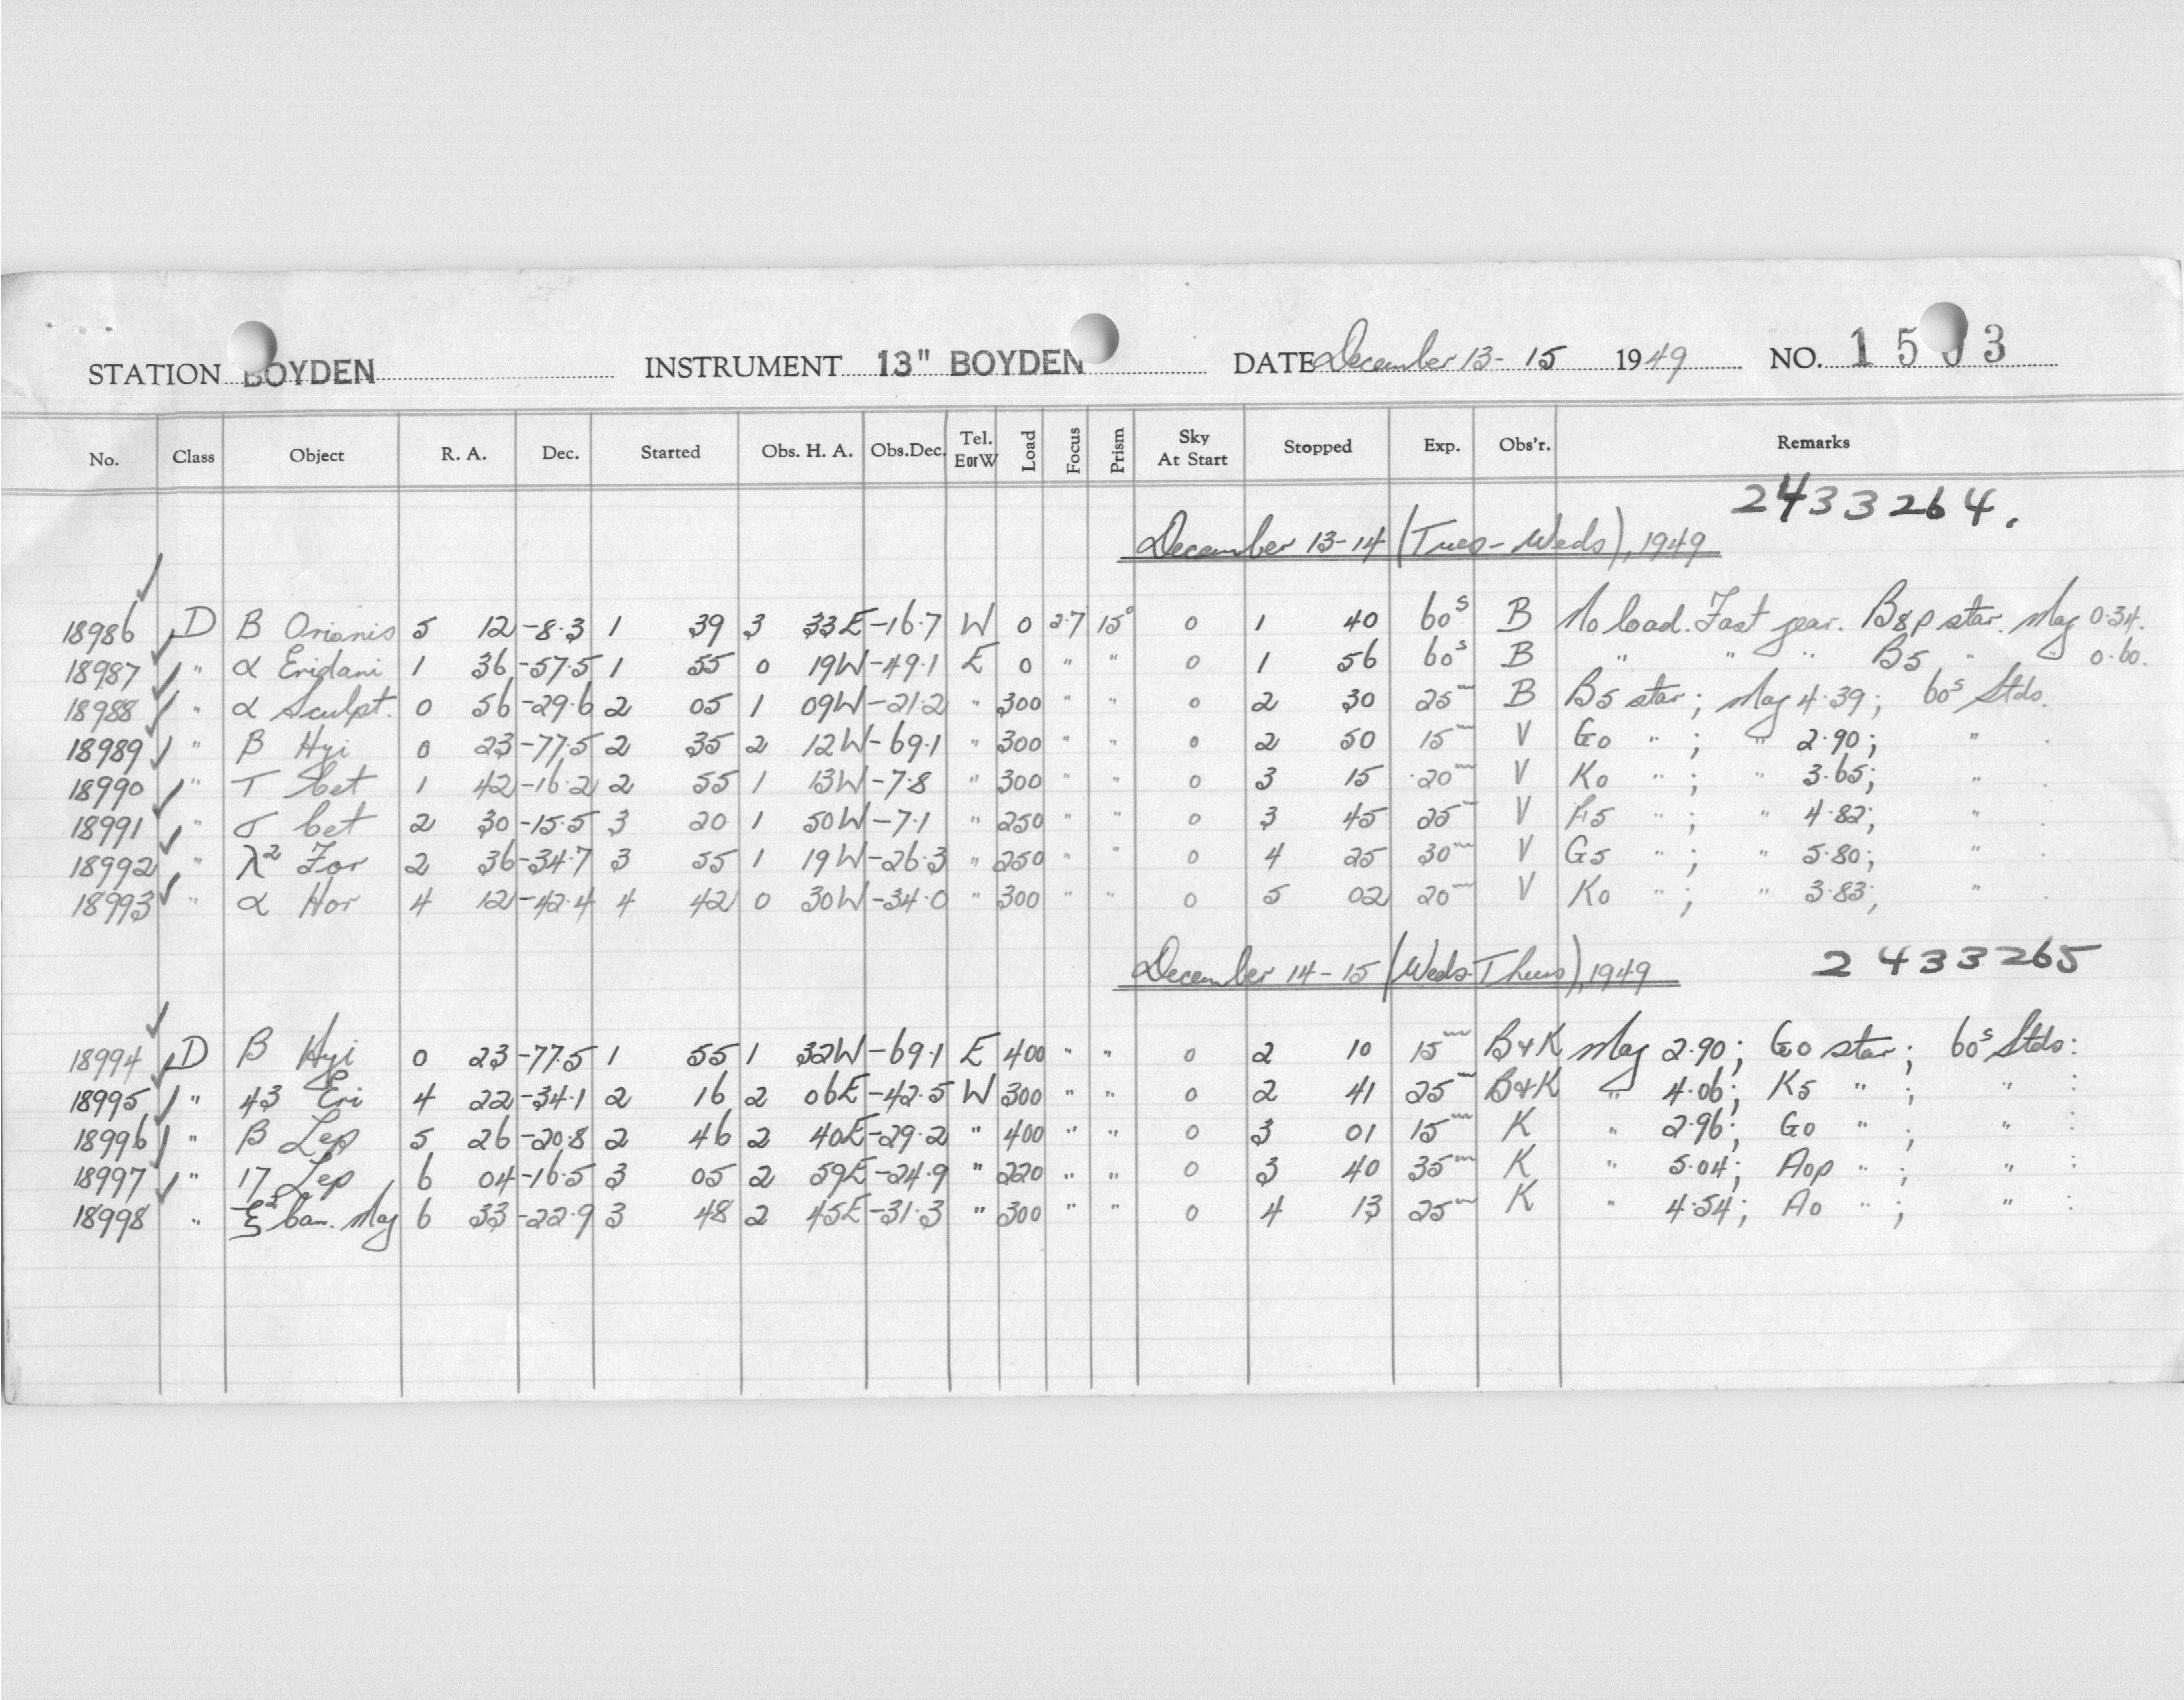 STATION BOYDEN INSTRUMENT 13" BOYDEN DATE December 13-15 1949 NO. 1503
No. Class Object R. A. Dec. Started Obs. H. A. Obs.Dec. Tel. EorW Load Focus Prism Sky At Start Stopped Exp. Obs'r. Remarks
2433264.
December 13-14 (Tues-Weds), 1949
18986 D β Orionis 5 12 -8.3 1 39 3 33E -16.7 W 0 2.7 15° 0 1 40 60s B No load. Fast gear. B8p star. Mag 0.34.
18987 " α Eridani 1 36 -57.5 1 55 0 19W -49.1 E 0 " " 0 1 56 60s B " " " B5 " " 0.60.
18988 " α Sculpt. 0 56 -29.6 2 05 1 09W -21.2 " 300 " " 0 2 30 25m B B5 star; Mag 4.39; 60s Stds.
18989 " β Hyi 0 23 -77.5 2 35 2 12W -69.1 " 300 " " 0 2 50 15m V G0 " ; " 2.90; " .
18990 " τ Cet 1 42 -16.2 2 55 1 13W -7.8 " 300 " " 0 3 15 20m V K0 " ; " 3.65; " .
18991 " σ Cet 2 30 -15.5 3 20 1 50W -7.1 " 250 " " 0 3 45 25m V F5 " ; " 4.82; " .
18992 " λ² For 2 36 -34.7 3 55 1 19W -26.3 " 250 " " 0 4 25 30m V G5 " ; " 5.80; " .
18993 " α Hor 4 12 -42.4 4 42 0 30W -34.0 " 300 " " 0 5 02 20m V K0 " ; " 3.83; " .
December 14-15 (Weds-Thurs), 1949 2433265
18994 D β Hyi 0 23 -77.5 1 55 1 32W -69.1 E 400 " " 0 2 10 15m B&K Mag 2.90; G0 star; 60s Stds:
18995 " 43 Eri 4 22 -34.1 2 16 2 06E -42.5 W 300 " " 0 2 41 25m B&K " 4.06; K5 " ; " :
18996 " β Lep 5 26 -20.8 2 46 2 40E -29.2 " 400 " " 0 3 01 15m K " 2.96; G0 " ; " :
18997 " 17 Lep 6 04 -16.5 3 05 2 59E -24.9 " 220 " " 0 3 40 35m K " 5.04; A0p " ; " :
18998 " ξ² Can. Maj 6 33 -22.9 3 48 2 45E -31.3 " 300 " " 0 4 13 25m K " 4.54; A0 " ; " :